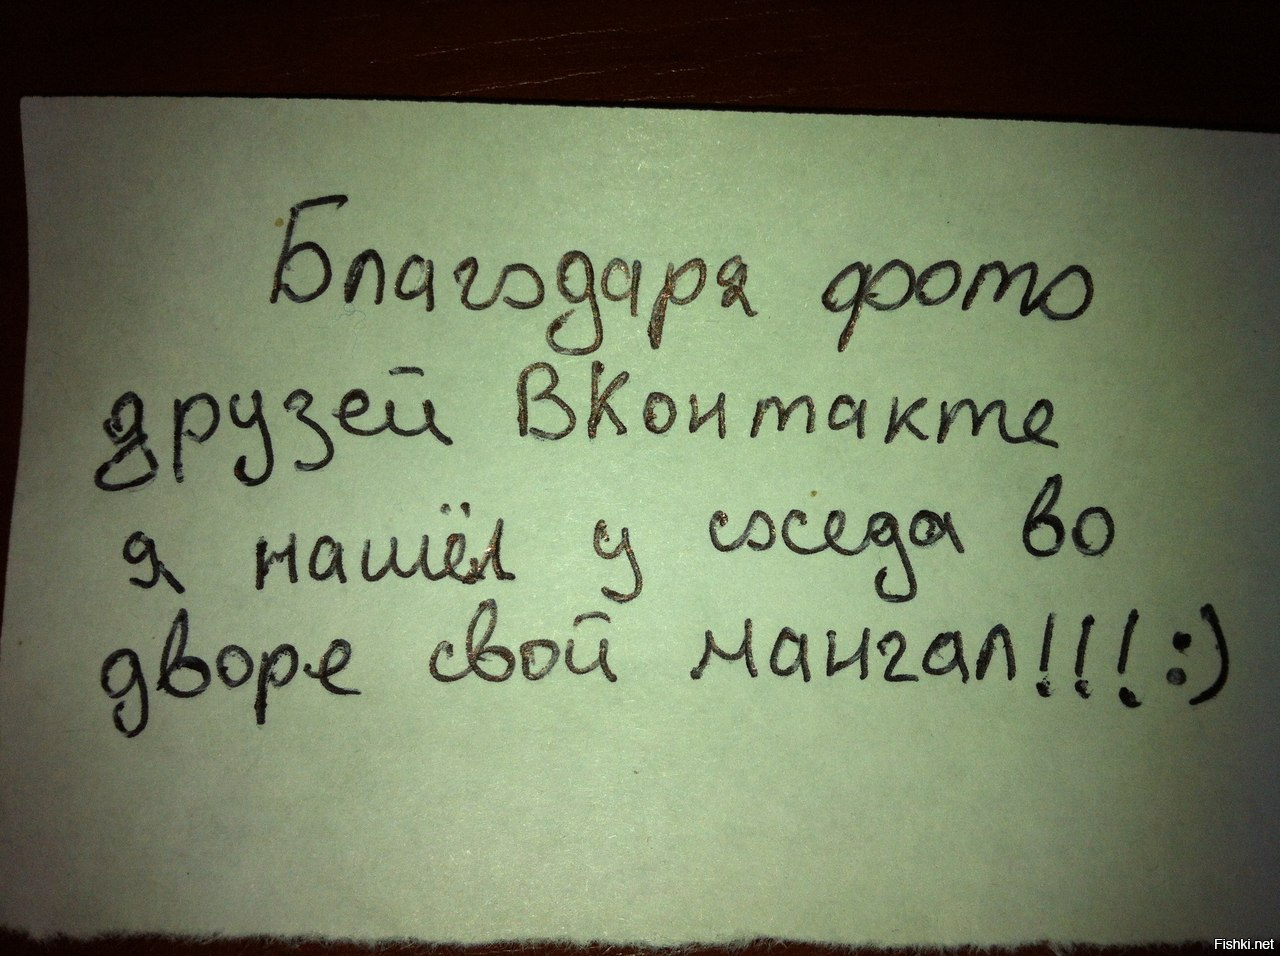 Благодаря фото
друзей ВКонтакте
я нашёл у соседа во
дворе свой мангал!!! :)
Fishki.net